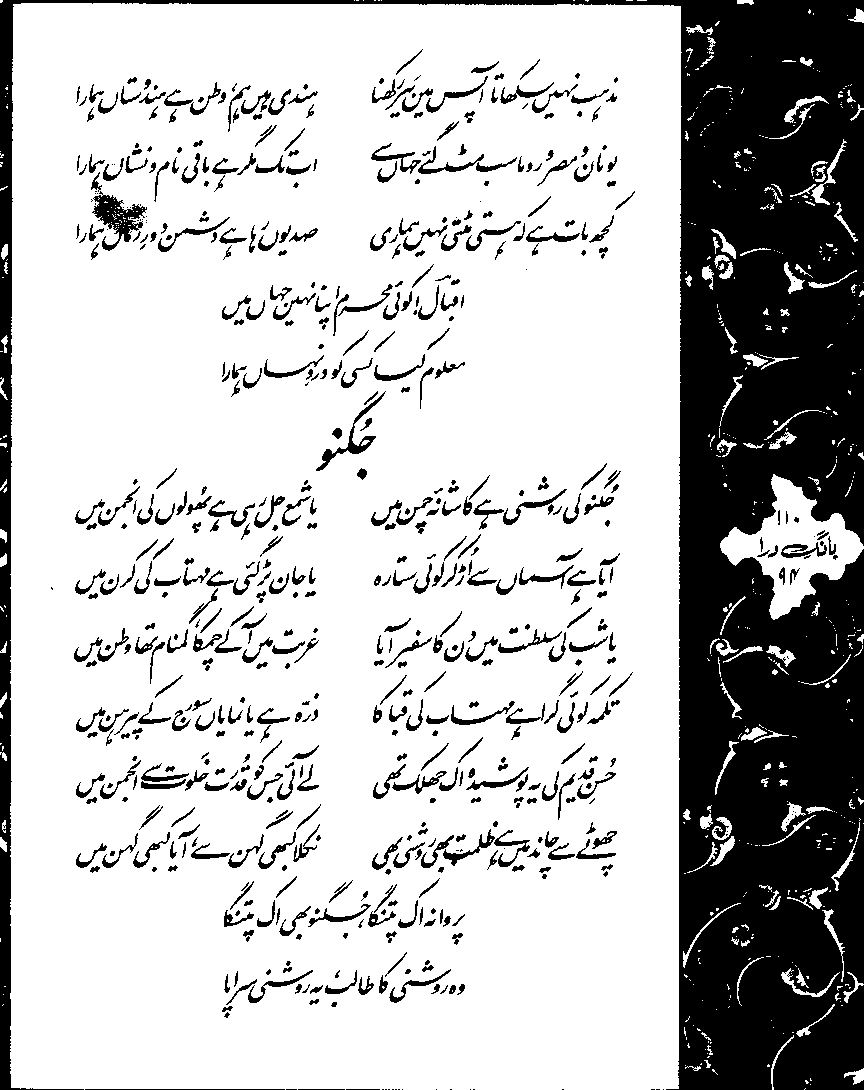 مذہب نہیں سکھاتا آپس میں بیر رکھنا ہندی ہیں ہم، وطن ہے ہندوستاں ہمارا
یونان و مصر و روما سب مٹ گئے جہاں سے اب تک مگر ہے باقی نام و نشاں ہمارا
کچھ بات ہے کہ ہستی مٹتی نہیں ہماری صدیوں رہا ہے دشمن دورِ زماں ہمارا
اقبالؔ! کوئی محرم اپنا نہیں جہاں میں
معلوم کیا کسی کو دردِ نہاں ہمارا
جُگنو
جُگنو کی روشنی ہے کاشانۂ چمن میں یا شمع جل رہی ہے پھُولوں کی انجمن میں
آیا ہے آسماں سے اُڑ کر کوئی ستارہ یا جان پڑ گئی ہے مہتاب کی کرن میں
یا شب کی سلطنت میں دن کا سفیر آیا غربت میں آ کے چمکا، گمنام تھا وطن میں
تکمہ کوئی گرا ہے مہتاب کی قبا کا ذرّہ ہے یا نمایاں سورج کے پیرہن میں
حُسنِ قدیم کی یہ پوشیدہ اک جھلک تھی لے آئی جس کو قُدرت خَلوت سے انجمن میں
چھوٹے سے چاند میں ہے ظلمت بھی روشنی بھی نکلا کبھی گہن سے، آیا کبھی گہن میں
پروانہ اک پتنگا، جُگنو بھی اک پتنگا
وہ روشنی کا طالب، یہ روشنی سراپا
۱۱۰
بانگِ درا
۹۴